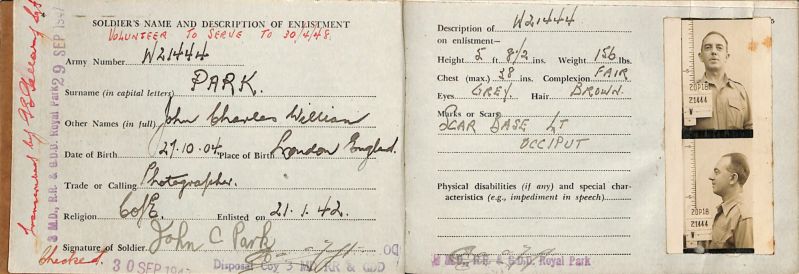 SOLDIER'S NAME AND DESCRIPTION OF ENLISTMENT
VOLUNTEER TO SERVE TO 30/4/48.
Army Number W21444
Surname (in capital letters) PARK.
Other Names (in full) John Charles William
Date of Birth 27.10.04 Place of Birth London England.
Trade or Calling Photographer.
Religion C of E. Enlisted on 21.1.42.
Signature of Soldier John C Park
30 SEP 194 Disposal Coy 3 MD RR & GDD
3 M.D. R.R. & G.D.D. Royal Park 29 SEP 1947
checked.
Description of W21444
on enlistment—
Height 5 ft. 8½ ins. Weight 156 lbs.
Chest (max.) 38 ins. Complexion FAIR
Eyes GREY. Hair BROWN.
Marks or Scars
SCAR BASE LT
OCCIPUT
Physical disabilities (if any) and special char-
acteristics (e.g., impediment in speech)
M.D., R.R. & G.D.D. Royal Park
20P18
21444
W
20P18
21444
W
5